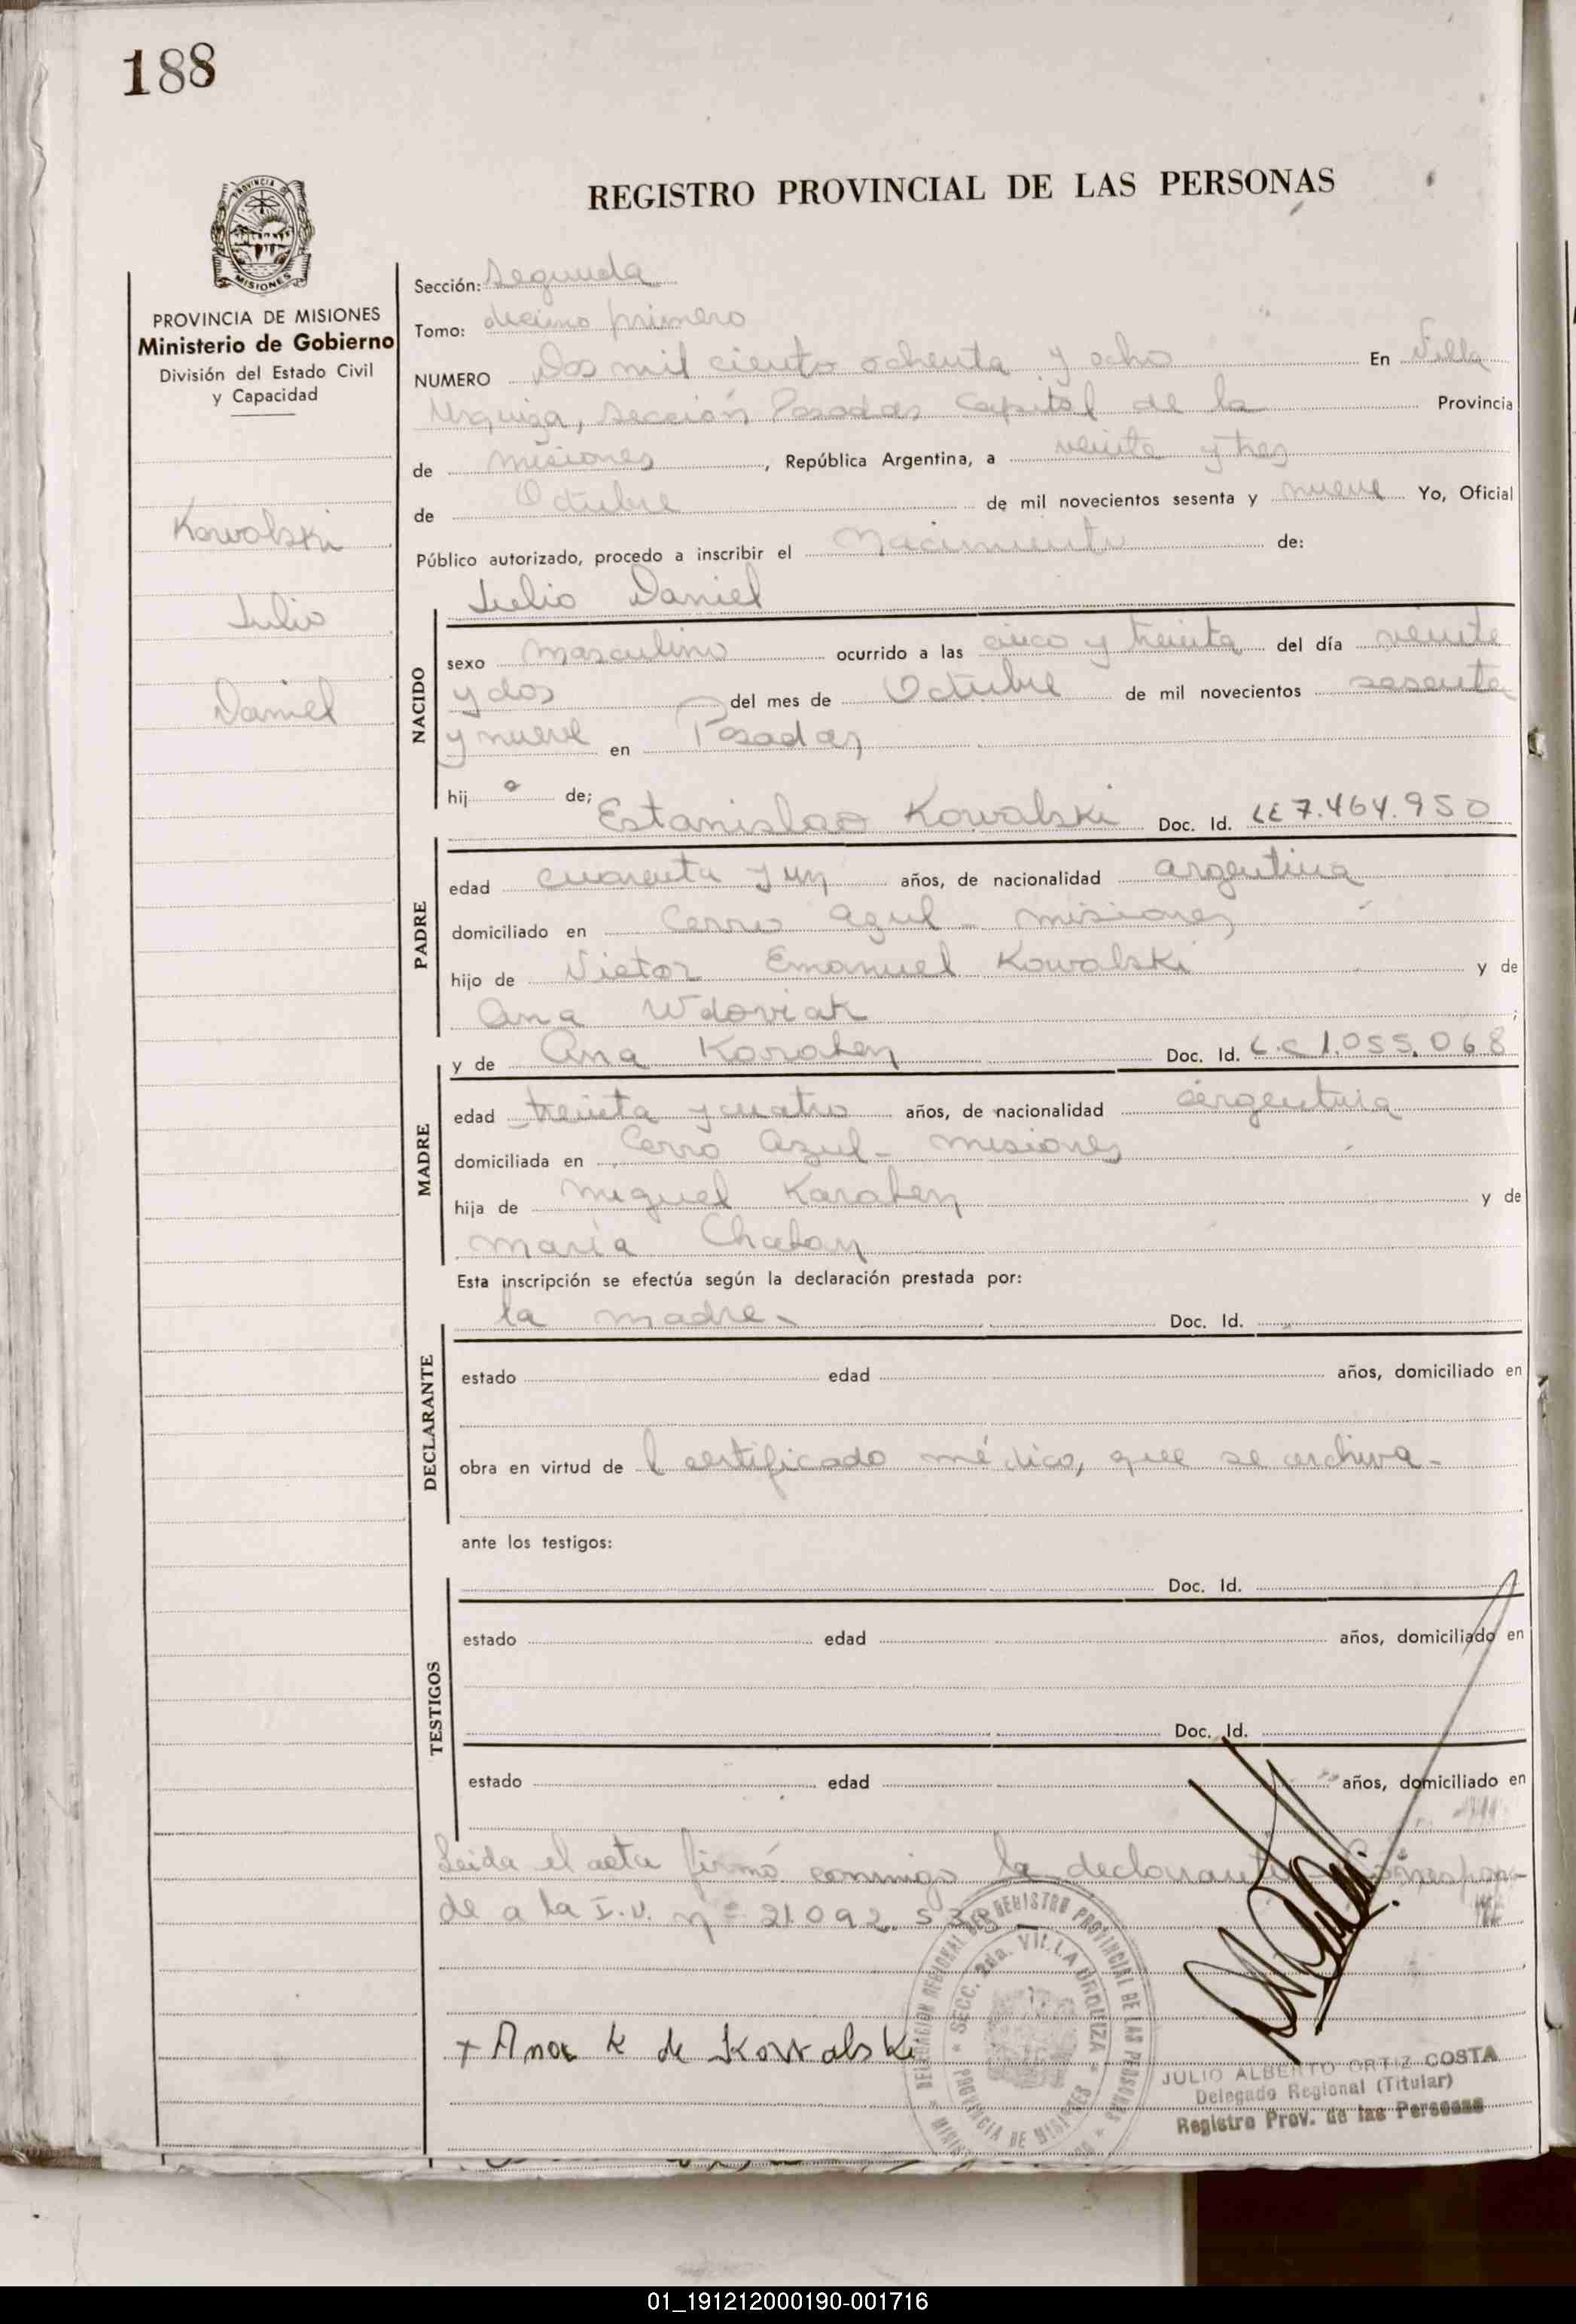 188
REGISTRO PROVINCIAL DE LAS PERSONAS
PROVINCIA DE
MISIONES
PROVINCIA DE MISIONES
Ministerio de Gobierno
División del Estado Civil
y Capacidad
Kowalski
Julio
Daniel
Sección: Segunda
Tomo: decimo primero
NUMERO Dos mil ciento ochenta y ocho En Villa
Urquiza, sección Posadas Capital de la Provincia
de Misiones, República Argentina, a veinte y tres
de Octubre de mil novecientos sesenta y nueve Yo, Oficial
Público autorizado, procedo a inscribir el Nacimiento de:
Julio Daniel
NACIDO
sexo masculino ocurrido a las cinco y treinta del día veinte
y dos del mes de Octubre de mil novecientos sesenta
y nueve en Posadas
hij o de; Estanislao Kowalski Doc. Id. LE 7.464.950
PADRE
edad cuarenta y un años, de nacionalidad argentina
domiciliado en Cerro Azul - Misiones
hijo de Victor Emanuel Kowalski y de
Ana Wdoviak ;
y de Ana Doc. Id. L.C 1.055.068
MADRE
edad treinta y cuatro años, de nacionalidad argentina
domiciliada en Cerro Azul - Misiones
hija de Miguel y de
María
Esta inscripción se efectúa según la declaración prestada por:
la madre - Doc. Id.
DECLARANTE
estado edad años, domiciliado en
obra en virtud de l certificado médico, que se archiva -
ante los testigos:
Doc. Id.
TESTIGOS
estado edad años, domiciliado en
Doc. Id.
estado edad años, domiciliado en
Leida el acta firmó conmigo la declarante Correspon-
de a la I.U. Nº 21.092.
+ Ana K de Kowalski
DELEGACION REGIONAL DEL REGISTRO PROVINCIAL DE LAS PERSONAS
SECC. 2da. VILLA URQUIZA
PROVINCIA DE MISIONES
JULIO ALBERTO ORTIZ COSTA
Delegado Regional (Titular)
Registro Prov. de las Personas
01_191212000190-001716